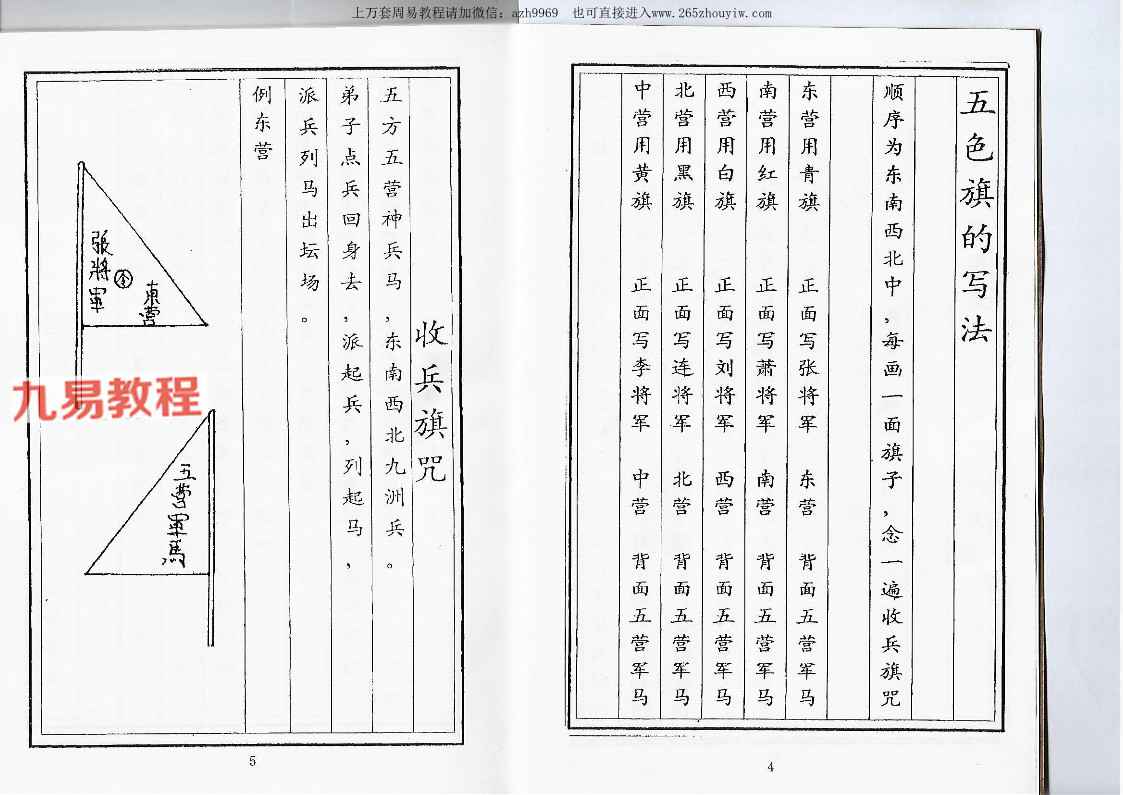 上万套周易教程请加微信：azh9969 也可直接进入www.265zhouyiw.com
五色旗的写法
顺序为东南西北中，每画一面旗子，念一遍收兵旗咒
东营用青旗 正面写张将军 东营 背面五营军马
南营用红旗 正面写萧将军 南营 背面五营军马
西营用白旗 正面写刘将军 西营 背面五营军马
北营用黑旗 正面写连将军 北营 背面五营军马
中营用黄旗 正面写李将军 中营 背面五营军马
4
收兵旗咒
五方五营神兵马，东南西北九洲兵。
弟子点兵回身去，派起兵，列起马，
派兵列马出坛场。
例东营
張將軍
令
東营
五营軍馬
九易教程
5